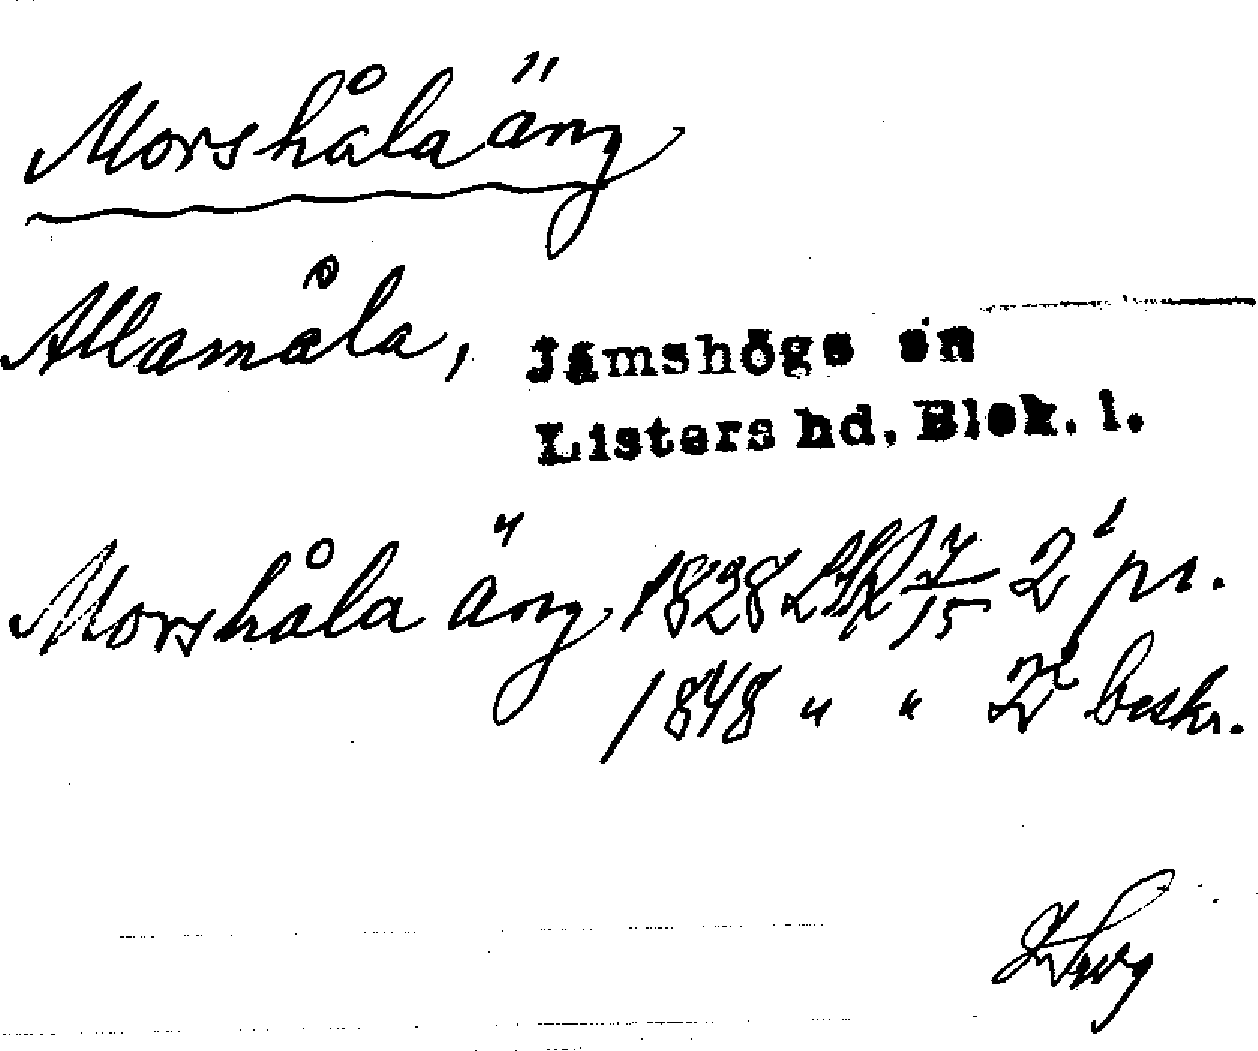 Morshåla äng
Allamåla, Jämshögs sn
Listers hd, Blek. l.
Morshåla äng 1828 LSK 7/15 2' pr.
1848 " " 2' beskr.